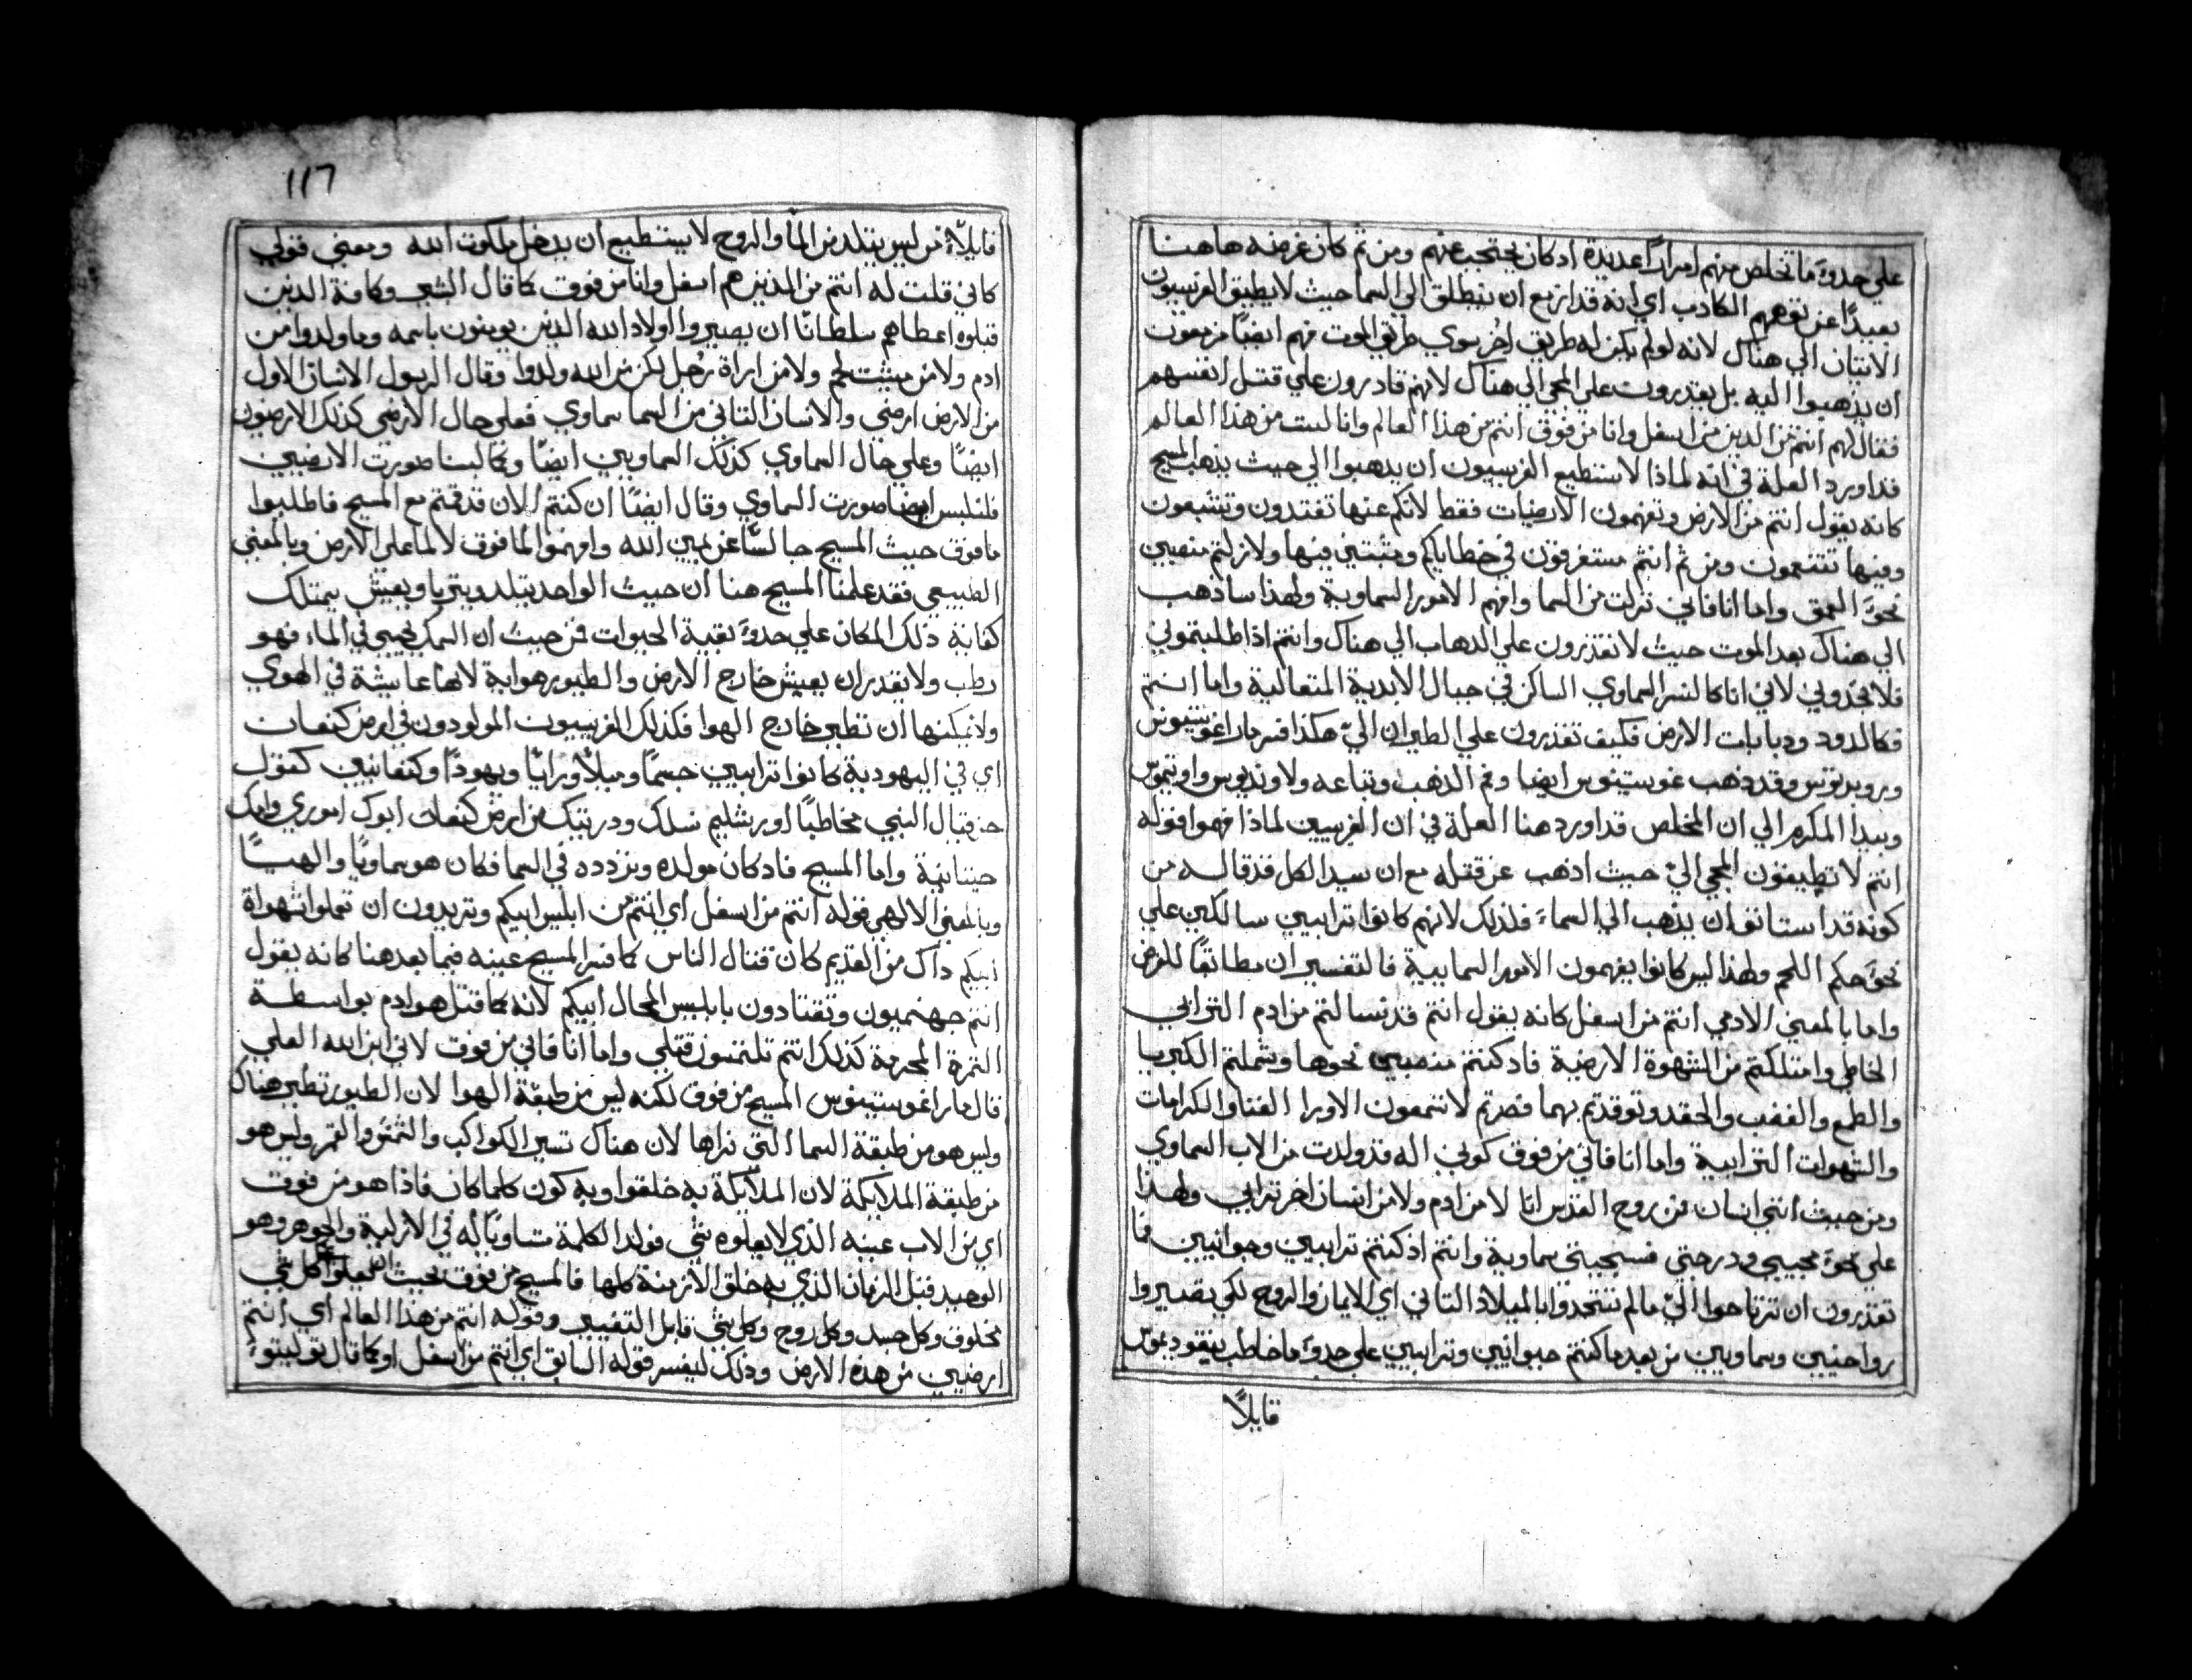 علي حدوَ ما تخلص منهم امرارًا عديدة اد كان يحتجب عنهم ومن ثم كان غرضه هاهنا
بعيدًا عن توهمهم الكادب اي انه قد ازمع ان ينطلق الي السما حيث لا يطيق الفريسيون
الاتيان الي هناك لانه لو لم يكن له طريق اخر سوي طريق الموت فهم ايضًا مزمعون
ان يذهبوا اليه بل يقدرون علي المجي الي هناك لانهم قادرون علي قتل انفسهم
فقال لهم انتم من الدين من اسفل وانا من فوق انتم من هذا العالم وانا لست من هذا العالم
قد اورد العلة في انه لماذا لا يستطيع الفريسيون ان يدهبوا الي حيث يذهب المسيح
كانه يقول انتم من الارض وتفهمون الارضيات فقط لانكم عنها تفتدون وتشبعون
وفيها تتنعمون ومن ثم انتم مستغرقون في خطاياكم ومثبتين فيها ولا زلتم منصبين
نحوَ العمق واما انا فاني نزلت من السما وافهم الامور السماوية ولهذا سادهب
الي هناك بعد الموت حيث لا تقدرون علي الدهاب الي هناك وانتم اذا طلبتموني
فلا تجدوني لاني انا كالنسر السماوي الساكن في جبال الابدية المتعالية واما انتم
فكالدود ودبابات الارض فكيف تقدرون علي الطيران اليّ هكذا فسر مار اغوستينوس
وروبرتوس وقد دهب غوستينوس ايضا وفم الذهب وتباعه ولاونديوس واوتيموس
وبيدا المكرم الي ان المخلص قد اورد هنا العلة في ان الفريسيين لماذا فهموا قوله
انتم لا تطيقون المجي اليّ حيث ادهب عن قتله مع ان سيد الكل قد قاله من
كونه قد استانف ان يذهب الي السماءَ فلذلك لانهم كانوا ترابيين سالكين علي
نحوَ حكم اللحم ولهذا ليس كانوا يفهمون الامور السمايية فالتفسير ان مطابقًا للغرض
واما بالمعني الادمي انتم من اسفل كانه يقول انتم قد تسالتم من ادم الترابي
الخاطي وامتلكتم من الشهوة الارضية فاد كنتم منصبين نحوها وشملتم الكبريا
والطمع والغضب والحقد وتوقدتم بهما فصرتم لا تتبعون الاورا الغنا والكرامات
والشهوات الترابية واما انا فاني من فوق كوني اله قد ولدت من الاب السماوي
ومن حيث انني انسان فمن روح القدس انا لا من ادم ولا من انسان اخر ترابي ولهذا
علي نحوَ مجيبي ودرجتي فسجيتي سماوية وانتم اذ كنتم ترابيين وحوانيين فما
تقدرون ان ترتاحوا اليّ ما لم تتحدوا بالميلاد التاني اي الايمان والروح لكي تصيروا
رواحنيين وسماويين من بعد ما كنتم حيوانيين وترابيين علي حدوَ ما خاطب نيقوديموس
قايلاً
١١٦
قايلاً من ليس يتلد من الما والروح لا يستطيع ان يدخل ملكوت الله ومعني قولي
كاني قلت له انتم من الدين هم اسفل وانا من فوق كما قال البشير وكافة الدين
قبلوه اعطاهم سلطانًا ان يصيروا اولاد الله الدين يومنون باسمه وما ولدوا من
ادم ولا من مشيت لحم ولا من اراة رجل لكن من الله ولدوا وقال الرسول الانسان الاول
من الارض ارضي والانسان التاني من السما سماوي فعلي حال الارضي كذلك الارضيون
ايضًا وعلي حال السماوي كذلك السماويين ايضًا وكما لبسنا صورت الارضيين
فلنلبس ايضا صورت السماوي وقال ايضًا ان كنتم الان قد قمتم مع المسيح فاطلبوا
ما فوق حيث المسيح جالسًا عن يمين الله وافهموا لما فوق لا لما علي الارض وبالمعني
الطبيعي فقد علمنا المسيح هنا ان حيث الواحد يتلد ويتربا ويعيش يمتلك
كفاية ذلك المكان علي حدوَ بقية الحيوات فمن حيث ان السمك يحيي في الماء فهو
رطب ولا يقدر ان يعيش خارج الارض والطيور هواية لانها عايشة في الهوي
ولا يمكنها ان تطير خارج الهوا فكذلك الفريسيون المولودون في ارض كنعان
اي في اليهودية كانوا ترابيين جسمًا وميلاً ورايًا ويهودًا وكنعانيين كقول
حزقيال النبي مخاطبًا اورشليم نسلك ودريتك من ارض كنعان ابوك اموري وامك
حيتانية واما المسيح فاد كان مولده وتزدده في السما فكان هو سماويًا والهيًا
وبالمعني الالهي قوله انتم من اسفل اي انتم من ابليس ابيكم وتريدون ان تعملوا شهواة
ابيكم داك من القديم كان قتال الناس كما فسر المسيح عينه فيما بعد هنا كانه يقول
انتم جهنميون وتقتادون بابليس المحال ابيكم لانه كما قتل هو ادم بواسطة
الثمرة المحرمة كذلك انتم تلتمسون قتلي واما انا فاني من فوق لاني ابن الله العلي
قال مار اغوستينوس المسيح من فوق لكنه ليس من طبقة الهوا لان الطيور تطير هناك
وليس هو من طبقة السما التي نراها لان هناك تسير الكواكب والشمس والقمر وليس هو
من طبقة الملايكة لان الملايكة به خلقوا وبه كون كلما كان فاذا هو من فوق
اي من الاب عينه الذي لا يعلوه شي فولد الكلمة مساويًا له في الازلية والجوهر وهو
الوحيد قبل الزمان الذي به خلق الازمنة كلها فالمسيح من فوق بحيث انه يعلوا كل شي
مخلوق وكل جسد وكل روح وكل شي قابل التغيير وقوله انتم من هذا العالم اي انتم
ارضيين من هذه الارض ودلك ليفسر قوله السابق اي انتم من اسفل او كما قال توليتوس